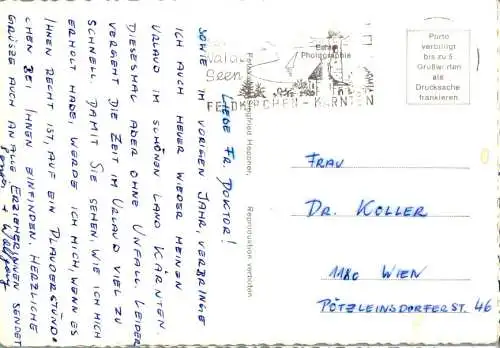 LIEBE FR. DOKTOR!
SOWIE IM VORIGEN JAHR, VERBRINGE
ICH AUCH HEUER WIEDER MEINEN
URLAUB IM SCHÖNEN LAND KÄRNTEN.
DIESESMAL ABER OHNE UNFALL. LEIDER
VERGEHT DIE ZEIT IM URLAUB VIEL ZU
SCHNELL. DAMIT SIE SEHEN, WIE ICH MICH
ERHOLT HABE, WERDE ICH MICH, WENN ES
IHNEN RECHT IST, AUF EIN PLAUDERSTÜND-
CHEN BEI IHNEN EINFINDEN. HERZLICHE
GRÜSSE AUCH AN ALLE ERZIEHERINNEN SENDET
+ Wolfgang
Seen
Photographie
FELDKIRCHEN - KÄRNTEN
Reproduktion verboten
Porto
verbilligt
bis zu 5
Grußworten
als
Drucksache
frankieren
FRAU
DR. KOLLER
1180 WIEN
PÖTZLEINSDORFERST. 46